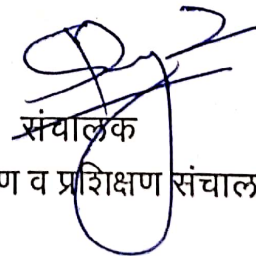 संचालक
ण व प्रशिक्षण संचाल